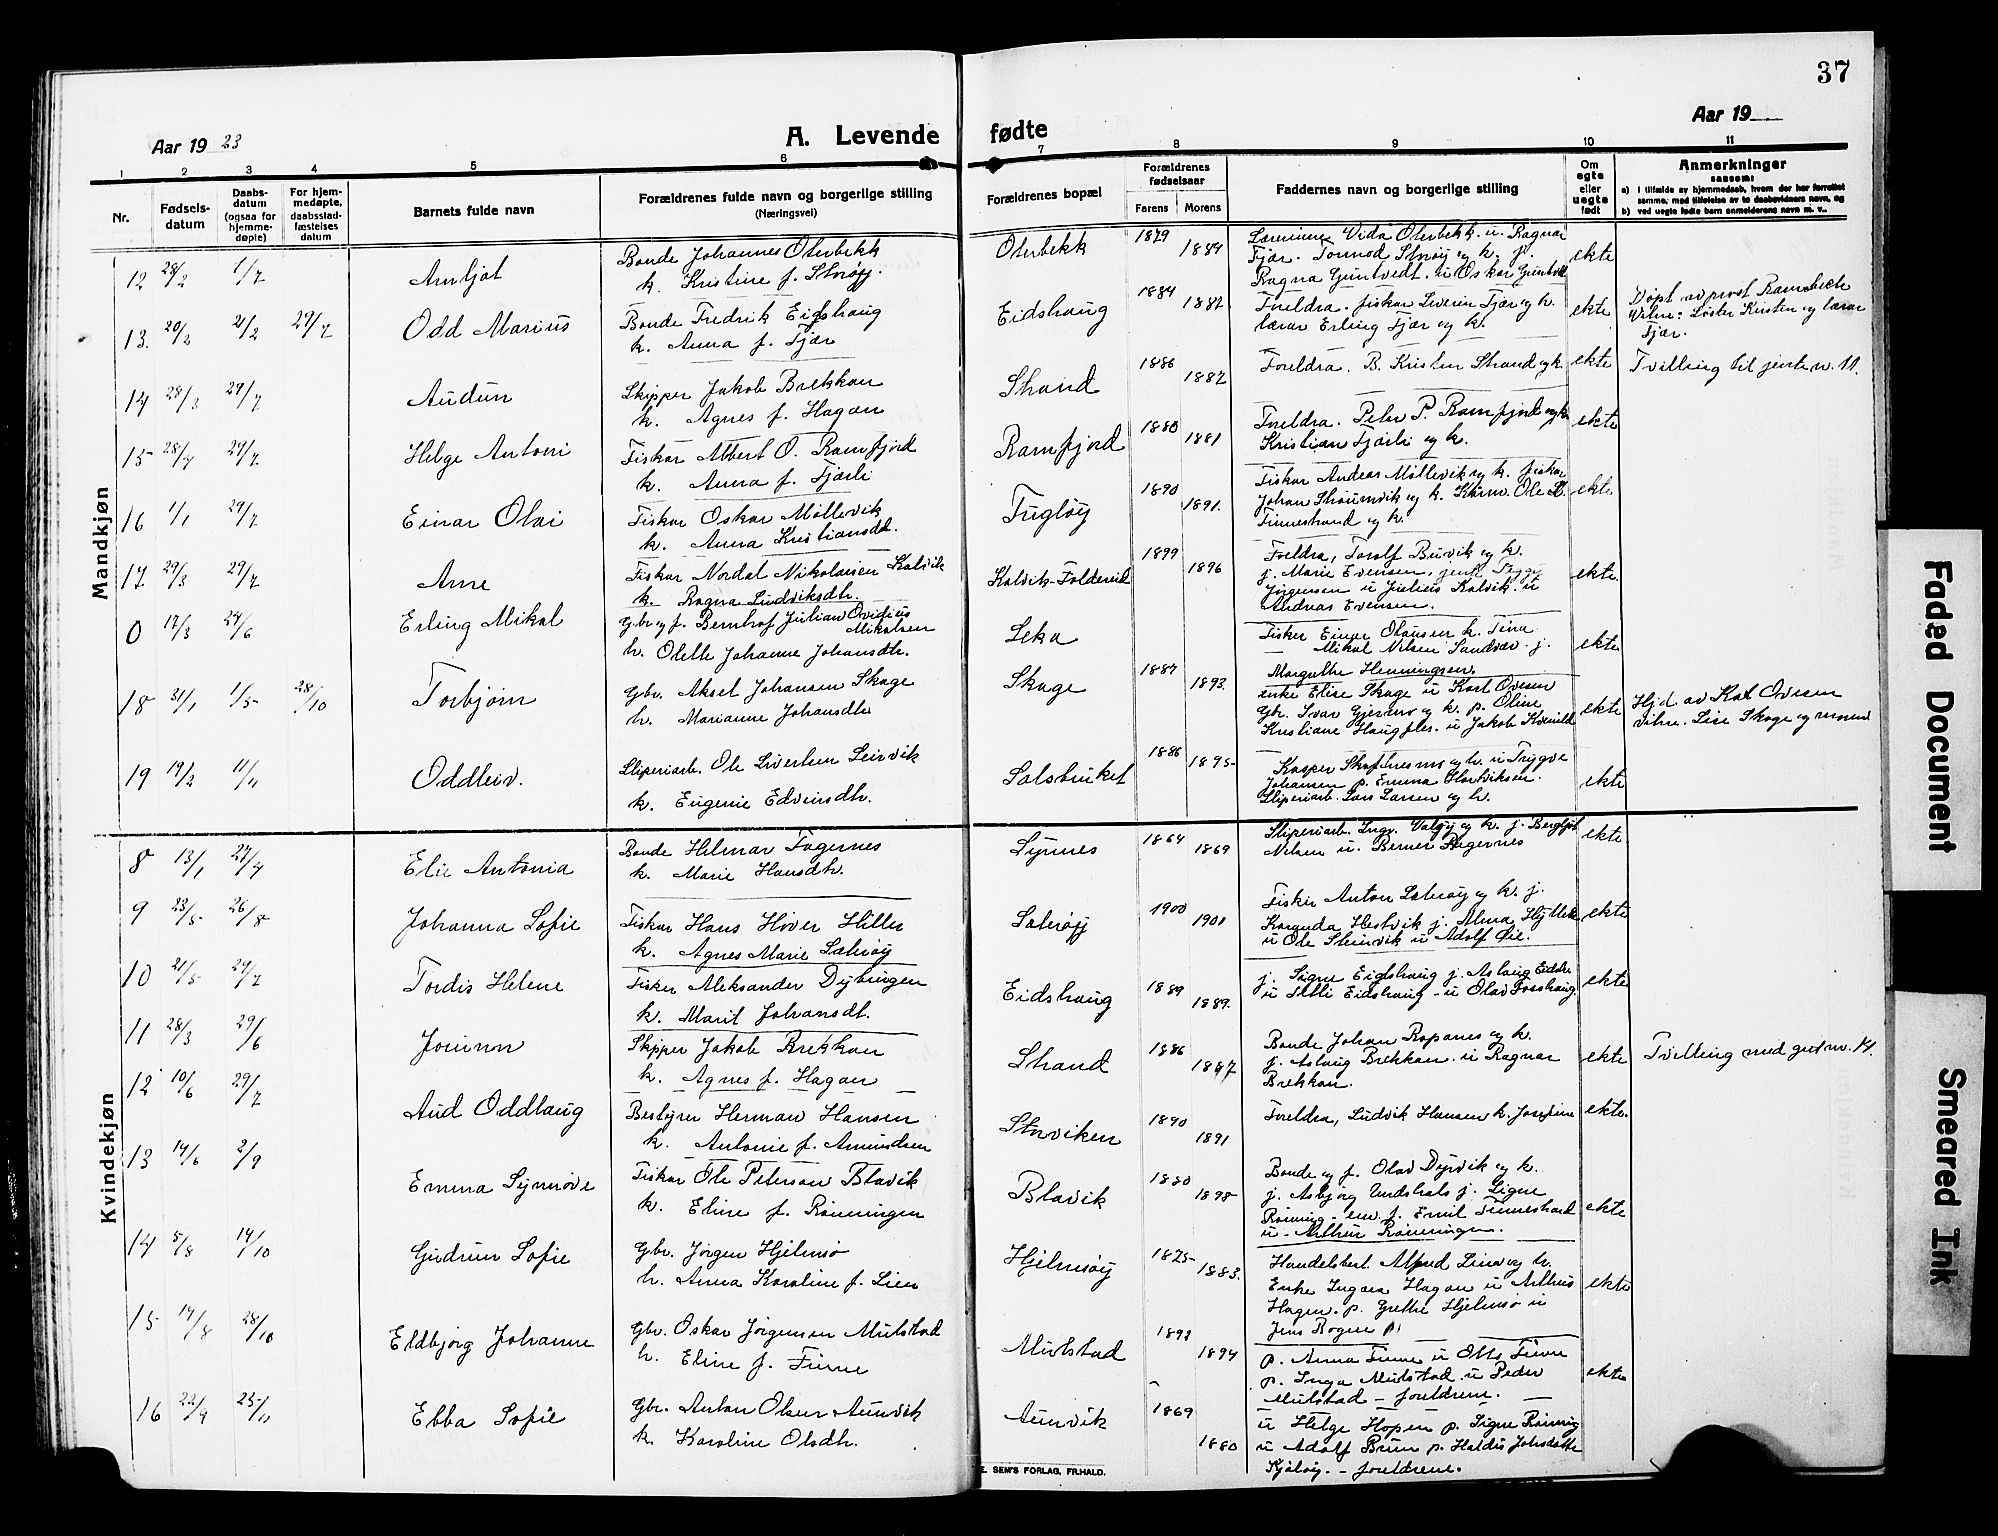 37
Aar 1923
A. Levende fødte
Aar 19
1 2 3 4 5 6 7 8 9 10 11
Nr.
Fødsels-datum
Daabs-datum (ogsaa for hjemme-døpte)
For hjem-medøpte, daabsstad-fæstelses datum
Barnets fulde navn
Forældrenes fulde navn og borgerlige stilling
(Næringsvei)
Forældrenes bopæl
Forældrenes fødselsaar
Farens Morens
Faddernes navn og borgerlige stilling
Om egte eller uegte født
Anmerkninger
sansom:
a) i tilfælde av hjemmedaab, hvem der har forrettet
samme, med tilføielse av to daabsvidners navn, og
b) ved uegte fødte barn anmelderens navn m. v..
Mandkjøn
12 28/2 1/7 Arnljot
Bonde Johannes Oterbekk
k. Kristine f. Storøy.
Oterbekk 1879 1884
Lærerinne Vida Oterbekk. u. Ragnar
Fjær. Tormod Storøy og k. p.
Ragna Guntvedt. u Oskar Guntvedt
ekte
13. 20/2 21/2 29/7 Odd Marius
Bonde Fredrik Eidshaug
k. Anna f. Fjær
Eidshaug 1884 1882
Foreldra. fiskar Severin Fjær og k.
lærar Erling Fjær og k.
ekte
Døpt av prost
Vitne: Søster Kirsten og lærar
Fjær.
14 28/3 29/7 Audun
Skipper Jakob Brekkan
k. Agnes f. Hagan
Strand 1886 1887
Foreldra. B. Kristen Strand og k.
ekte
Tvilling til jente nr. 11.
15 28/4 29/7 Helge Antoni
Fiskar Albert O. Ramfjord
k. Anna f. Fjærli
Ramfjord 1880 1881
Foreldra. Peter P. Ramfjord og k.
Kristian Fjærli og k.
ekte
16 1/1 29/7 Einar Olai
Fiskar Oskar Møllevik
k. Anna Kristiansdt.
Fugløy 1890 1891.
Fiskar Andeas Møllevik og k. fiskar
Johan Straumvik og k. Ole
Finnestrand og k.
ekte
17. 29/3 29/7 Arne
Fiskar Nordal Nikolaisen Kalvik
k. Ragna Ludviksdtr.
Kalvik-Foldereid 1899 1896
Foreldra, Torolf Buvik og k.
j. Marie Evensen, Trygve
Jørgensen u Julius Kalvik. u
Andreas Evensen.
ekte
0 17/3 24/6 Erling Mikal
Gbr og f. Bernhof Julian Ovidius
Mikalsen
h. Olette Johanne Johansdtr.
Leka
Fisker Einar Olausen h. Tina
Mikal Nilsen Sandvær. j.
Margrethe Henningsen.
ekte
18 31/1 1/5 28/10 Torbjørn
Gbr. Aksel Johansen Skage
h. Marianne Johansdtr
Skage 1887 1893.
enke Elise Skage u Kort Ovesen
Gbr. Ivar Gjermo og k. p. Oline
Kristiane u Jakob
ekte
Hjd av Kort Ovesen
vitne. Lise Skage og moren
19 19/2 11/11 Oddleiv.
Sliperiarb. Ole Sivertsen Leirvik
k. Eugenie Edvinsdtr.
Salsbruket 1886 1895
Kasper Skaftnesmo og h. u Trygve
Johansen p. Emma Hartviksen.
Sliperiarb. Lars Larsen og h.
ekte
Kvindekjøn
8 13/1 27/4 Elie Antonia
Bonde Hilmar Fagernes
k. Marie Hansdtr.
Synnes 1864 1869
Sliperiarb. Ingv. Valøy og k. j. Bergljot
Nilsen u. Berner Fagernes
ekte
9 23/5 26/8 Johanna Sofie
Fiskar Hans Høver Hiller
k. Agnes Marie Saterøy
Saterøy 1900 1901
Fisker Anton Saterøy og k. j.
Karanda Hestvik j. Alma
u Ole Steinvik u Adolf Øie.
ekte
10 21/5 29/7 Tordis Helene
Fisker Aleksander Dybingen
k. Marit Johansdt.
Eidshaug 1889 1889.
j. Signe Eidshaug j. Aslaug Eidsh.
u Eidshaug - u Olav Forshaug.
ekte
11 28/3 29/6 Jorunn
Skipper Jakob Brekkan
k. Agnes f. Hagan
Strand 1886 1887
Bonde Johan Ropanes og k.
j. Aslaug Brekkan. u Ragnar
Brekkan.
ekte
Tvilling med gut nr. 14.
12 10/6 29/7 Aud Oddlaug
Bestyrer Herman Hansen
k. Antonie f. Amundsen
Storviken 1890 1891
Foreldra, Ludvik Hansen k. Josefine
ekte.
13 14/6 2/9 Emma Synnøve
Fiskar Ole Peterson Blavik
k. Eline f. Rønningen
Blavik 1898
Bonde og f. Olav Dyrvik og k.
j. Asbjørg j. Signe
Rønning - f. Emil Finnestrand
u - Arthur Rønningen.
ekte
14 5/8 14/10 Gudrun Sofie
Gbr. Jørgen Hjelmsø
h. Anna Karoline f. Lien
Hjelmsøy 1875 1883.
Handelsbest. Alfred Lino og h.
Enke Ingara Hagan u Arthus
Hagen. p. Grethe Hjelmsø u
Jens Rogne p.
ekte
15 14/8 28/10 Eldbjørg Johanne
Gbr. Oskar Jørgensen Mulstad
h. Eline f. Finne
Mulstad 1892 1894
p. Anna Finne u Otto Finne
p. Inga Mulstad. u Peder
Mulstad - foreldrene.
ekte
16 22/9 25/11 Ebba Sofie
Gbr. Anton Olsen Aunvik
k. Karoline Olsdtr.
Aunvik 1869 1880
u Helge Hopen p. Signe Rønning
u Adolf Bruun p. Haldis Johsdatter
Kjeløy. - foreldrene.
E. SEM'S FORLAG, FR.HALD.
Faded Document
Smeared Ink